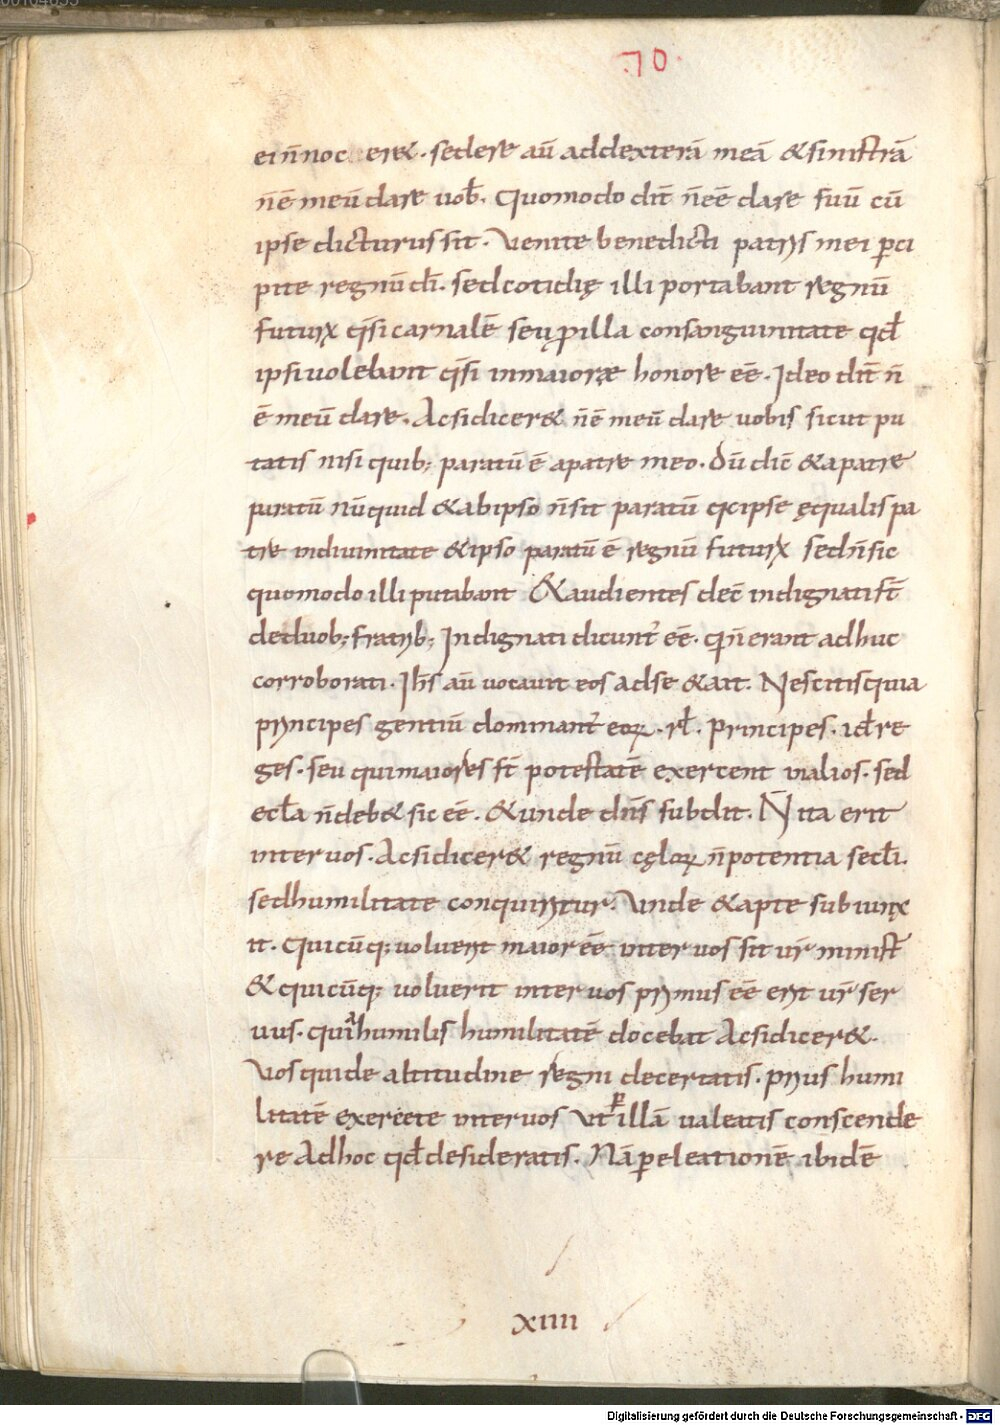 70
ei n̄ noc er&. sedere aū addexterā meā &sinistrā
n̄ē meū dare uob̄. Quomodo dix̄ n̄eē dare suū cū
ipse dicturus sit. Venite benedicti patris mei ꝑci
pite regnū dī. sed cotidię illi portabant regnū
futurꝝ q̄si carnalē seu ꝓ illa consanguinitate qd̄
ipsi uolebant q̄si inmaiorę honore eē. Ideo dix̄ n̄
ē meū dare. Acsidicer& n̄ē meū dare uobis sicut pu
tatis nisi quib; paratū ē apatre meo. Dū dic̄ &apatre
paratū nūquid &abipso n̄sit paratū q ipse ęqualis pa
tre indiuinitate &ipso paratū ē regnū futurꝝ sed n̄ sic
quomodo illi putabant &audientes decē indignati st̄
deduob; fratrib; Indignati dicunt̄ eē. q n̄ erant adhuc
corroborati. Ih̄s aū uocauit eos adse &ait. Nescitis quia
principes gentiū dominant̄ eoꝝ. rl̄. Principes. id̄ re
ges. seu qui maiores st̄ potestatē exercent inalios. sed
eccl̄a n̄ deb& sic eē. &unde dn̄s subdit. N̄ ita erit
inter uos. Acsidicer& regnū cęloꝝ n̄ potentia secl̄i.
sed humilitate conquiritur. Vnde &apte subiunx
it. Quicūq; uoluerit maior eē inter uos sit ur̄ minist̄
& quicūq; uoluerit inter uos primus eē erit ur̄ ser
uus. quia humilis humilitatē docebat Acsidicer&.
Vos quidē altitudine regni decertatis. prius humi
litatē exercete inter uos ut ꝑ illā ualeatis conscende
re Adhoc qd̄ desideratis. Nā ꝑ eleationē ibidē
xiiii
Digitalisierung gefördert durch die Deutsche Forschungsgemeinschaft - DFG